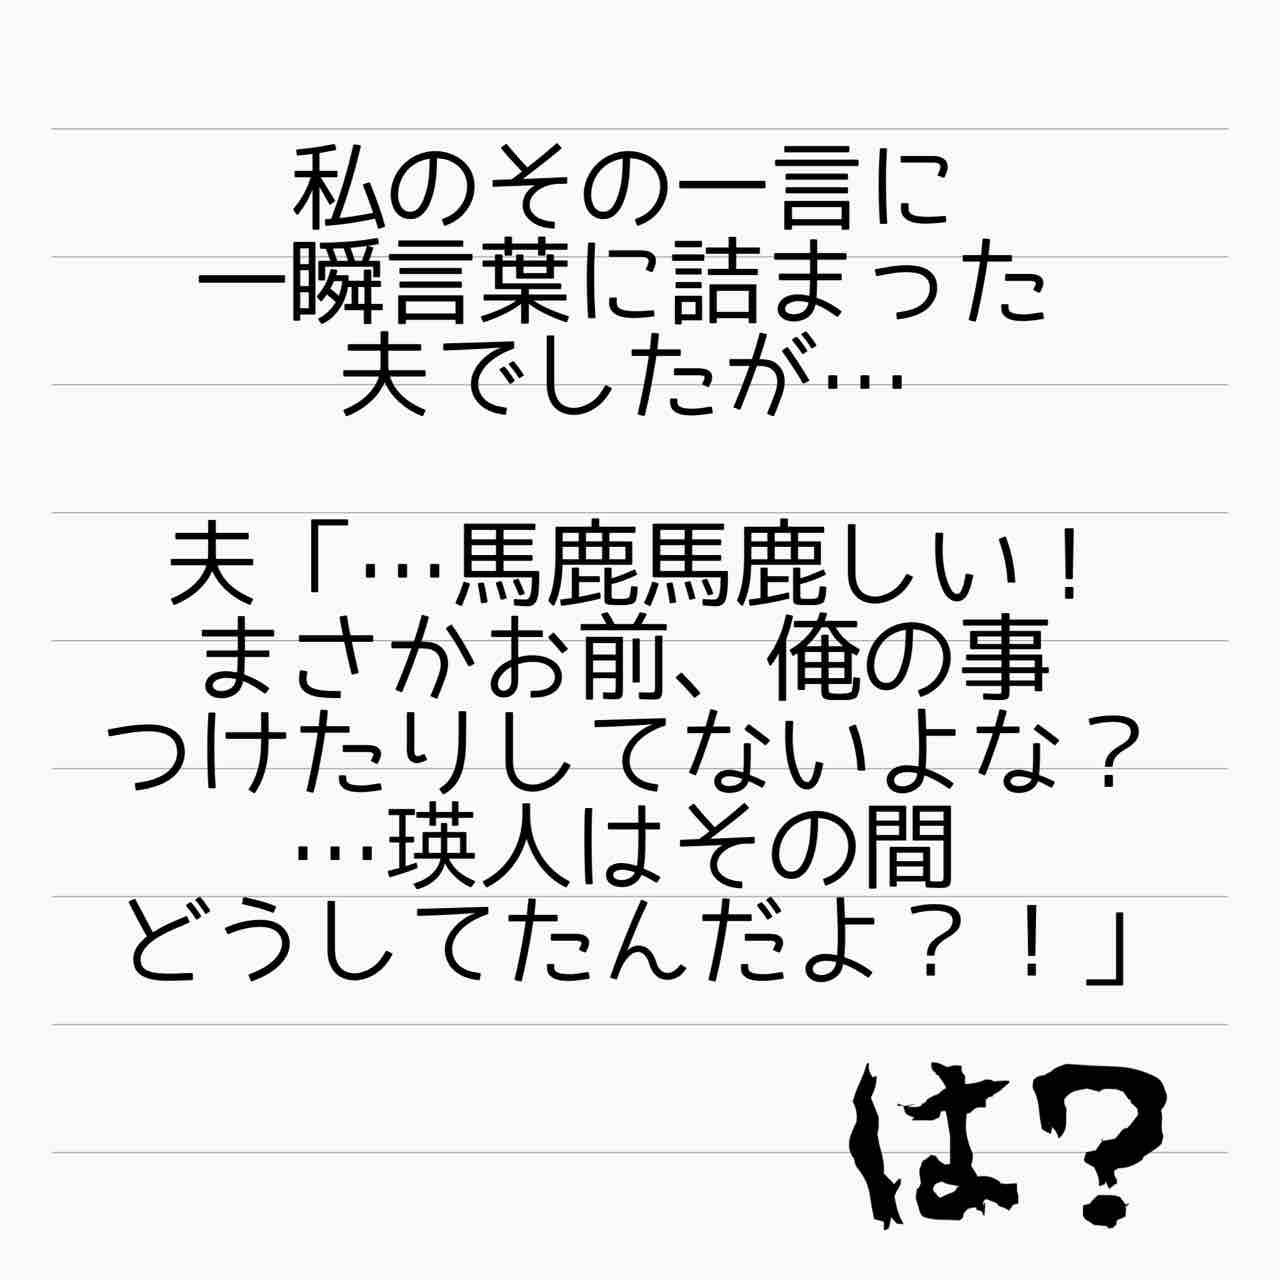 私のその一言に
一瞬言葉に詰まった
夫でしたが…
夫「…馬鹿馬鹿しい！
まさかお前、俺の事
つけたりしてないよな？
…瑛人はその間
どうしてたんだよ？！」
は？